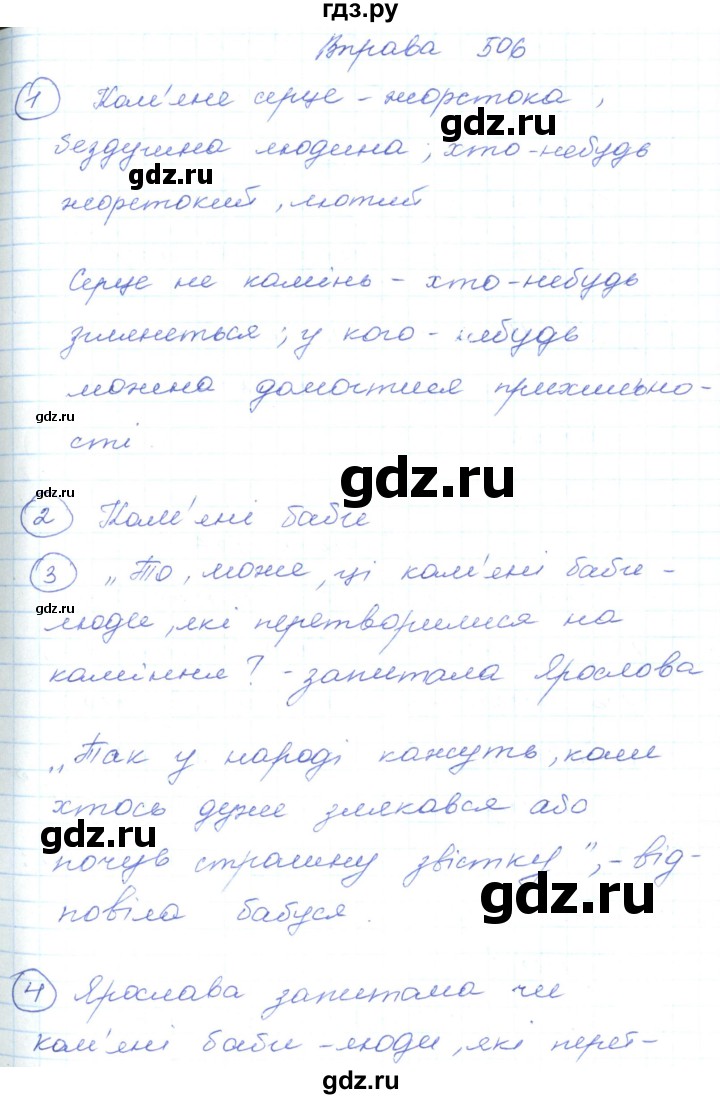 гдз.ру
Вправа 506
1 Кам'яне серце - жорстока,
бездушна людина; хто-небудь
жорстокий, лютий
Серце не камінь - хто-небудь
зглянеться; у кого-небудь
можна домогтися прихильно-
сті.
2 Кам'яні баби
3 „То, може, ці кам'яні баби -
люди, які перетворилися на
каміння? - запитала Ярослова
„Так у народі кажуть, коли
хтось дуже злякався або
почув страшну звістку", - від-
повіла бабуся.
4 Ярослава запитала чи
кам'яні баби - люди, які перет-
gdz.ru
gdz.ru
gdz.ru
gdz.ru
gdz.ru
gdz.ru
gdz.ru
gdz.ru
gdz.ru
gdz.ru